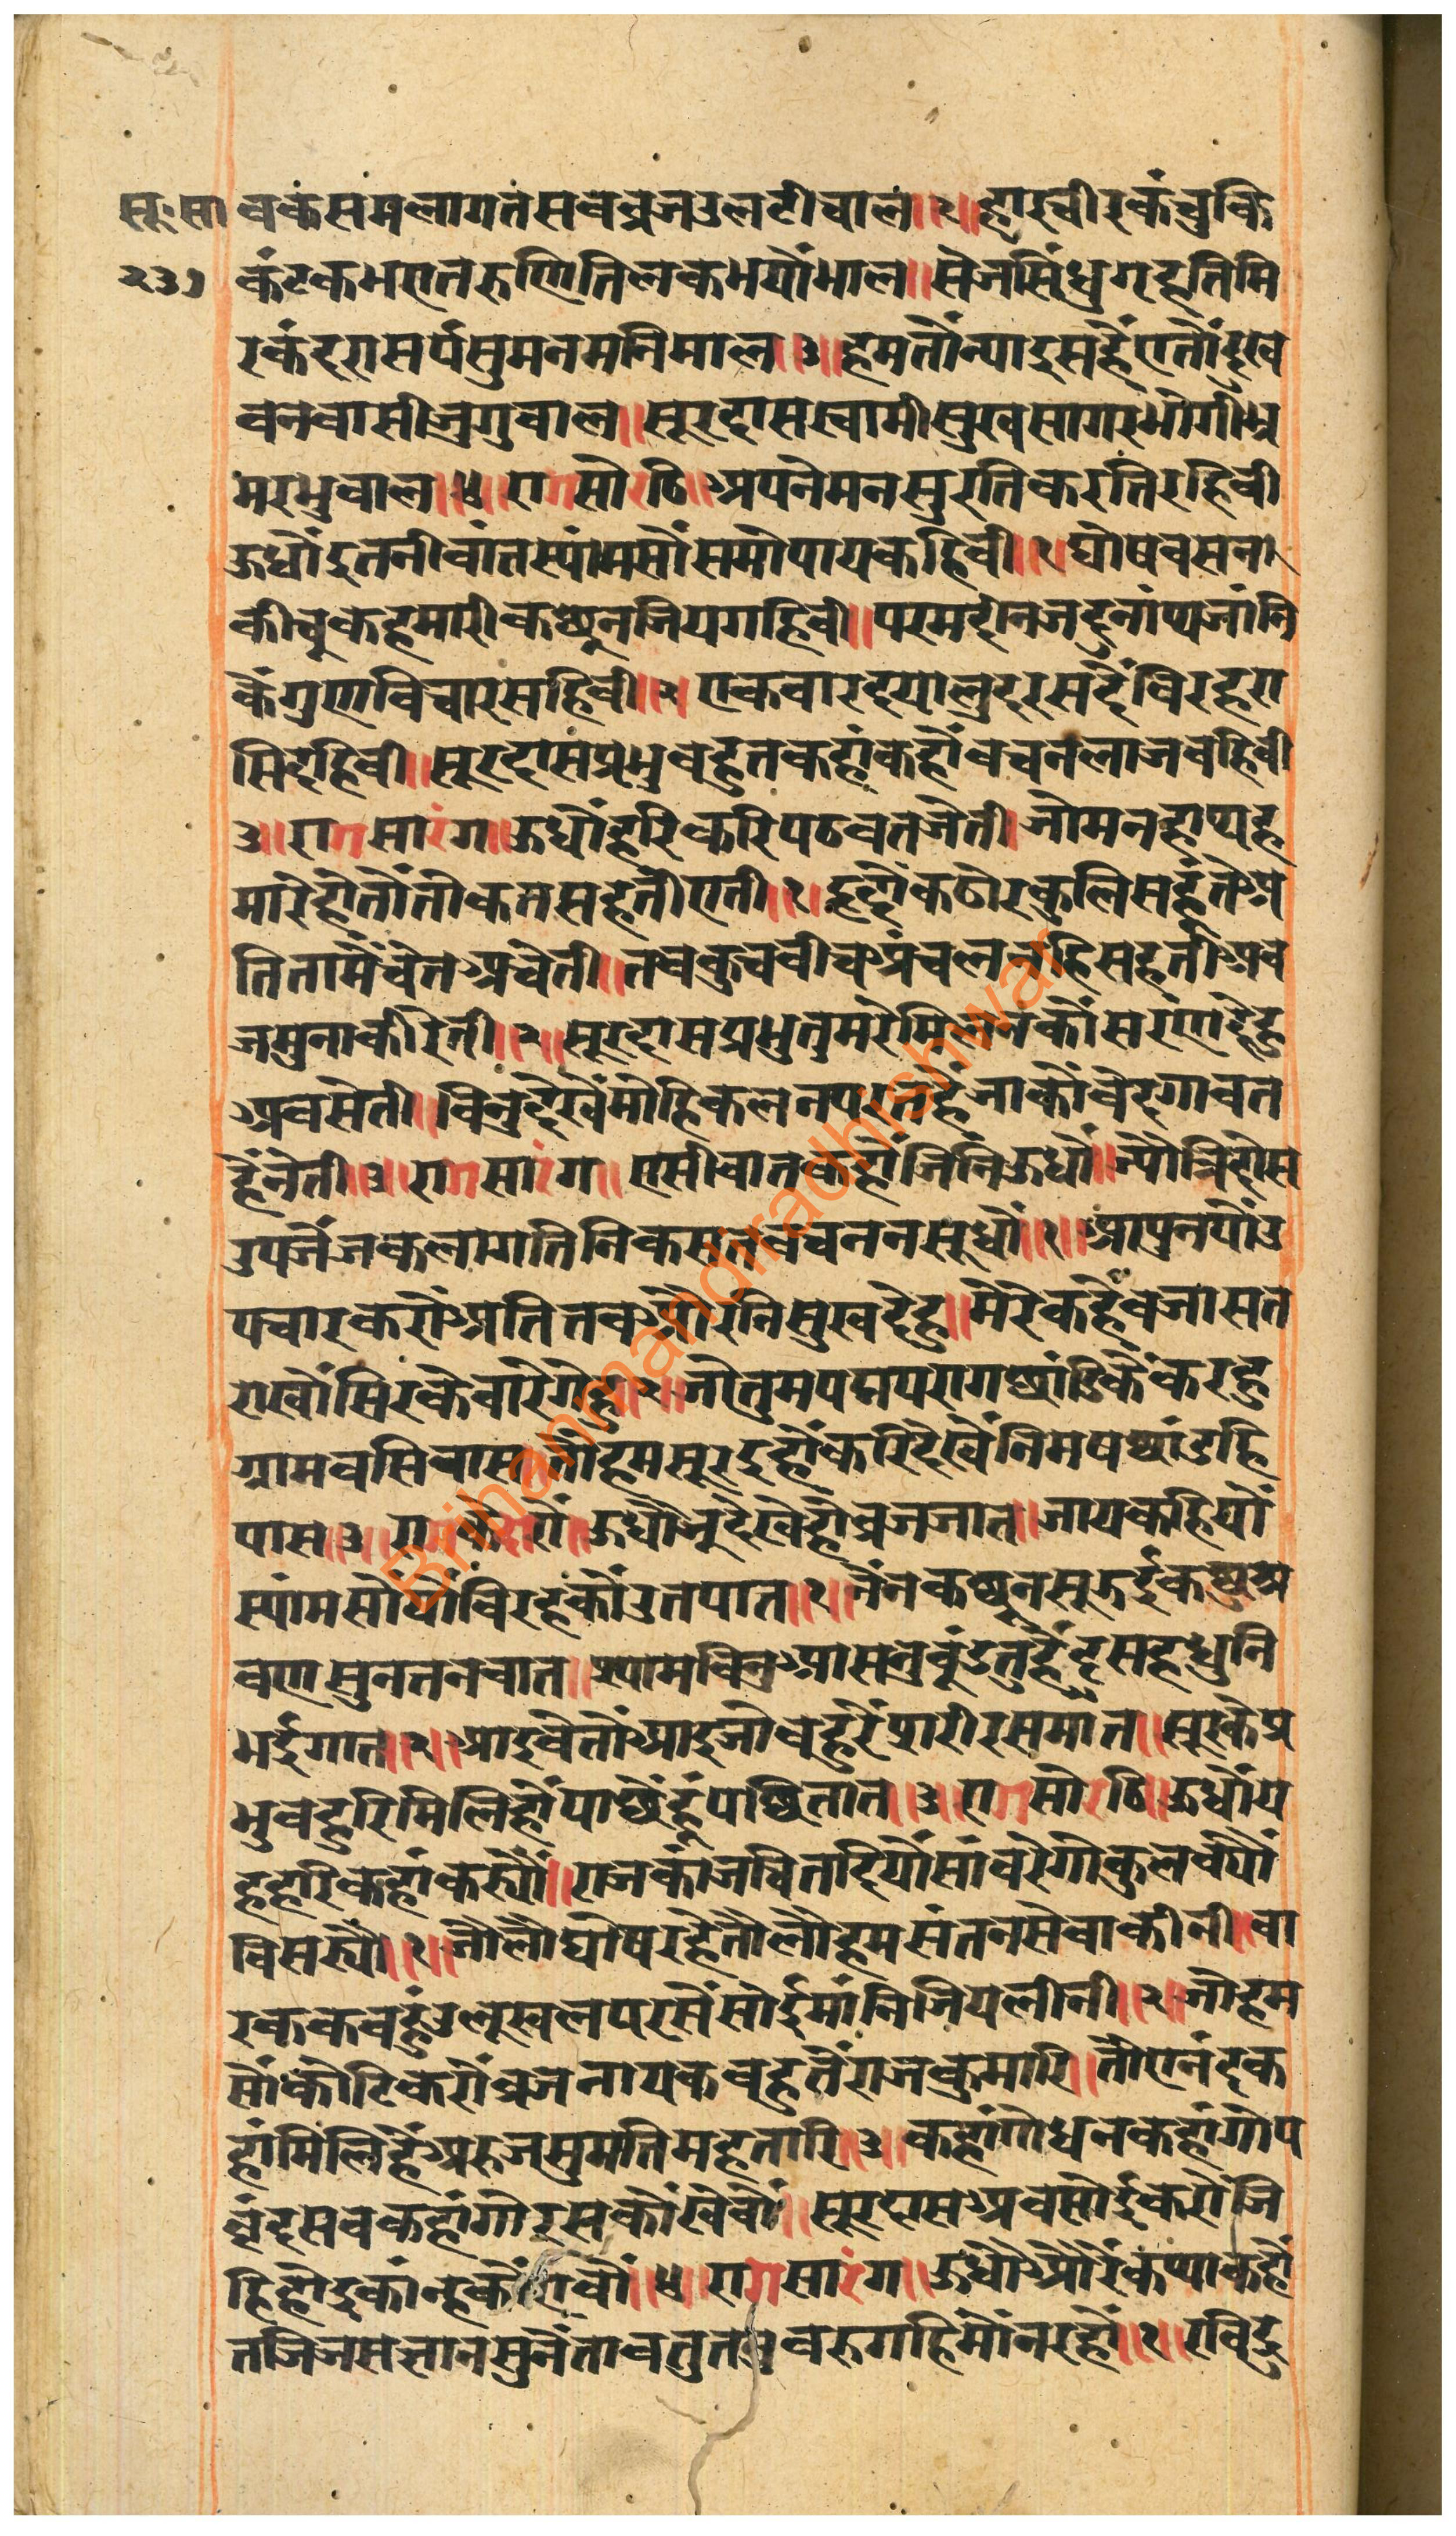 सू॰ सा वकसमलागतसबब्रजउलटीचाल॥२॥हारचीरकंचुकि
२३७ कंटकभएतरुणितिलकभयोंभाल॥सेजसिंधुगृहतिमि
रकंदरासर्पसुमनमनिमाल॥३॥हमतौंन्याइसहैंएतौंदुख
बनबासीजुगुवाल॥सूरदासस्वामीसुखसागरभोगीभ्र
मरभुवाल॥४॥रागसोरठि॥अपनेमनसुरतिकरतिरहिवी
ऊधौंइतनीबांतस्यांमसौंसमोपायकहिवी॥१॥घोषबसन
कीचूकहमारीकछूनजियगहिवी॥परमदीनजदुनांथजांनि
कैंगुणविचारसहिवी॥२॥एकबारदयालुदरसदैंबिरहरा
सिदहिवी॥सूरदासप्रभुबहुतकहांकहौंबचनलाजबहिवी
३॥रागसारंग॥ऊधौंहरिकरिपठवतजेती॥जोमनहाथह
मारेहोतौंतौकतसहतीएती॥१॥हृदौंकठोरकुलिसहूंतेंअ
तितामैंचेतअचेती॥तबकुचबीचअंचलनहिसहतीअब
जमुनाकीरेती॥२॥सूरदासप्रभुतुमरेमिलनकौंसरणदेहु
अबसेती॥बिनुदेखैंमोहिकलनपरतहैंजाकौंबेदगावत
हैंनेती॥३॥रागसारंग॥एसीबातकहौंजिनिऊधौं॥ज्यौंत्रिदोस
उपजेंजकलागतिनिकसतबचननसूधौं॥१॥आपुनपौंउ
पचारकरौंअतितबऔरनिसुखदेहु॥मेरेकहैंबजासत
राखौंसिरकेबारेगेहु॥२॥जोतुमपद्मपरागछांडिकैंकरहु
ग्रामबसिबास॥तौंहमसूरइहौंकरिदेखैंनिमषछांडहि
पास॥३॥रागकेदारौं॥ऊधौजूदेखेहौंब्रजजात॥जायकहियौं
स्यांमसौंयौंबिरहकौंउतपात॥१॥नैंनकछूनसूझईकछुश्र
वणसुनतनबात॥स्यामबिनुआसनुबूंडतुहैंदुसहधुनि
भईगात॥२॥आइबेतौंआइजोबहुरैंप्रारीरसमांत॥सूरकेप्र
भुबहुरिमिलिहौंपाछैंहूंपछितात॥३॥रागसोरठि॥ऊधौंय
हहरिकहांकर्यौं॥राजकांजचितदियौंसांवरेगोकुलक्यौं
बिसर्यौं॥१॥जौलौघोषरहेतौलौहमसंतनसेवाकीनी॥बा
रककबहूंउलूखलपरसेंसोईमांनिजियलीनी॥२॥जोहम
सौंकोटिकरौंब्रजनायकबहुतैंराजकुमारि॥तौएनंदक
हांमिलिहैंअरुजसुमतिमहतारि॥३॥कहांगोधनकहांगोप
बृंदसबकहांगोरसकौंखेबौं॥सूरदासअबसोईकरौजि
हिहोइकांन्हकौंऐबौं॥४॥रागसारंग॥ऊधौऔरेंकथाकहौं
तजिजसज्ञानसुनेंतावतुतनबरुगहिमौंनरहौं॥१॥रविदु
Brihanmandiradhishwar